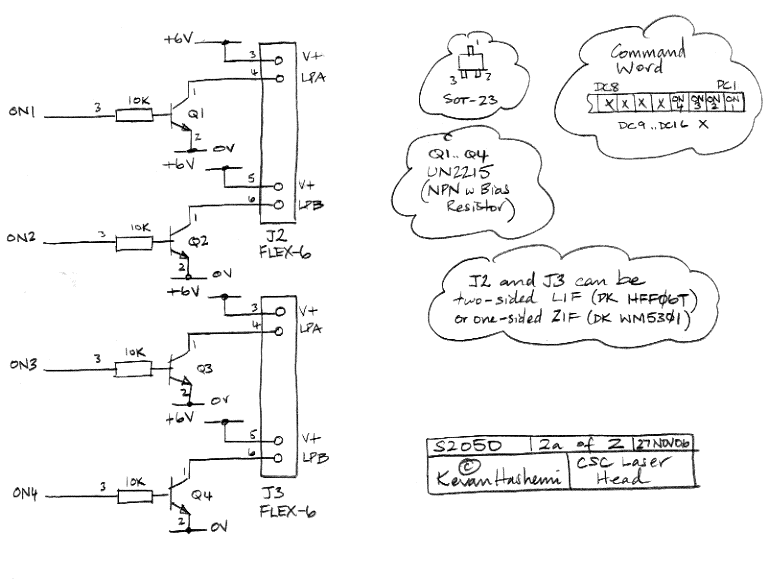 +6V
3 V+
4 LPA
ON1 3 10K 1 Q1
2
0V
+6V
5 V+
6 LPB
ON2 3 10K 1 Q2
2
0V
J2
FLEX-6
+6V
3 V+
4 LPA
ON3 3 10K 1 Q3
2
0V
+6V
5 V+
6 LPB
ON4 3 10K 1 Q4
2
0V
J3
FLEX-6
1
3 2
SOT-23
Command
Word
DC8 DC1
X X X X ON4 ON3 ON2 ON1
DC9..DC16 X
Q1..Q4
UN2215
(NPN w Bias
Resistor)
J2 and J3 can be
two-sided LIF (DK HFF06T)
or one-sided ZIF (DK WM5301)
S2050 2a of 2 27NOV06
©
Kevan Hashemi
CSC Laser
Head